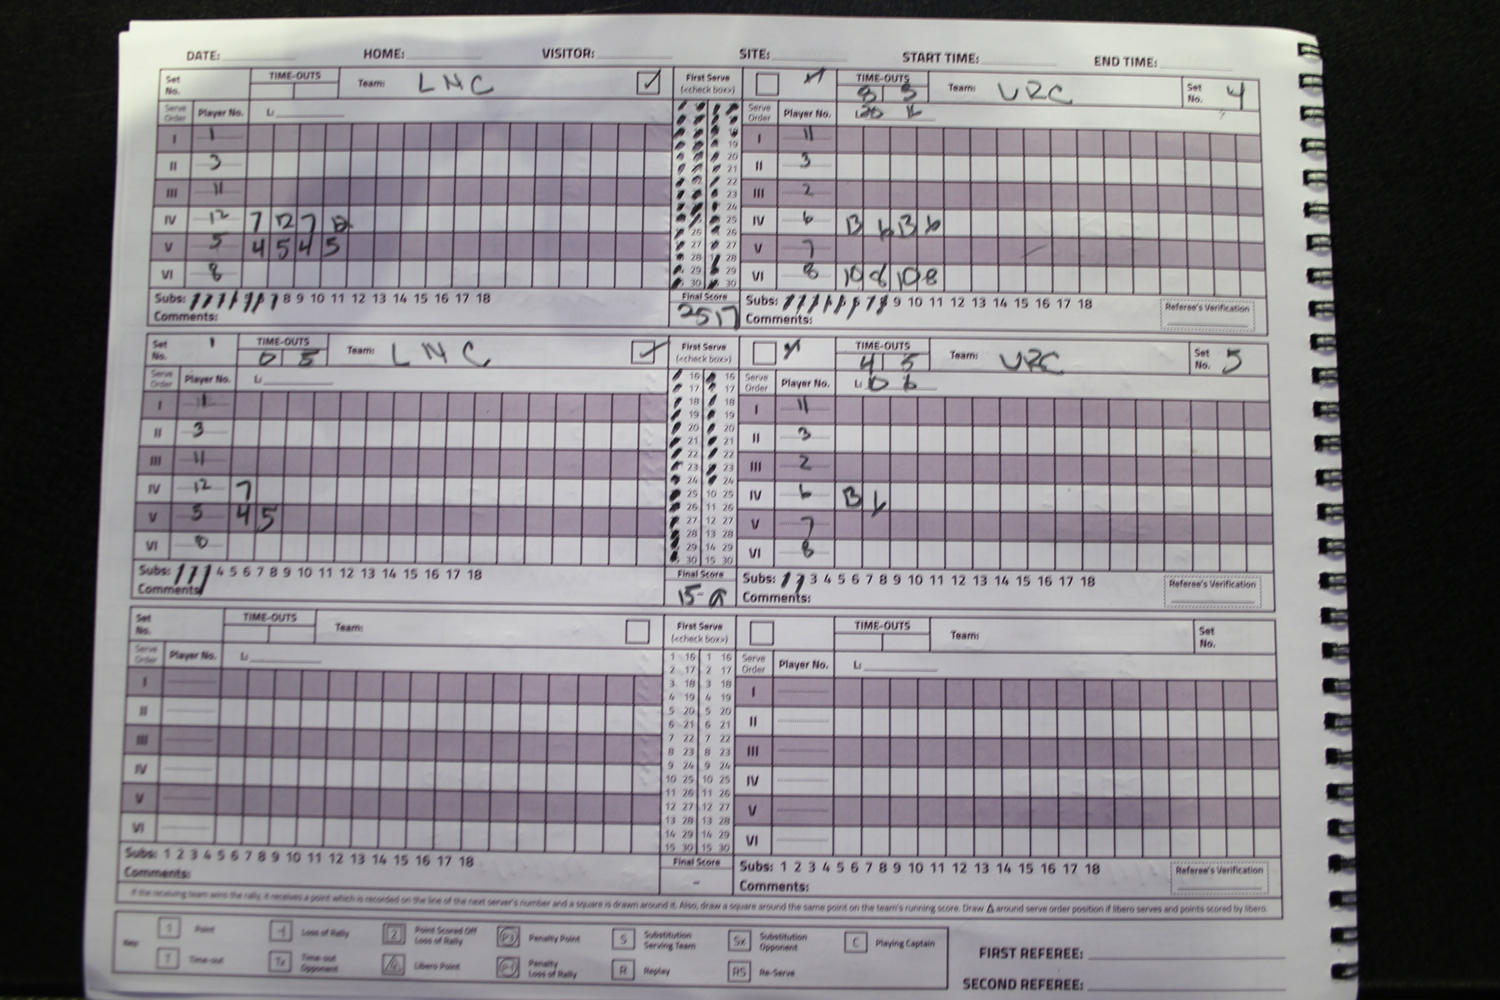 DATE: HOME: VISITOR: SITE: START TIME: END TIME:
Set No. TIME-OUTS Team: LNC First Serve (<check box>) TIME-OUTS 8 5 Team: URC Set No. 4
Serve Order Player No. L: Serve Order Player No. L:
I 1 I 11
II 3 II 3
III 11 III 2
IV 12 7 12 7 IV 6 13 6 13 6
V 5 4 5 4 5 V 7
VI 8 VI 8 10 8 10 8
Subs: 8 9 10 11 12 13 14 15 16 17 18 Final Score Subs: 9 10 11 12 13 14 15 16 17 18 Referee's Verification
Comments: 25 17 Comments:
Set No. TIME-OUTS Team: LNC First Serve (<check box>) TIME-OUTS 4 5 Team: URC Set No. 5
Serve Order Player No. L: Serve Order Player No. L:
I I 11
II 3 II 3
III 11 III 2
IV 12 7 IV 6 13 6
V 5 4 5 V 7
VI VI 8
Subs: 4 5 6 7 8 9 10 11 12 13 14 15 16 17 18 Final Score Subs: 3 4 5 6 7 8 9 10 11 12 13 14 15 16 17 18 Referee's Verification
Comments: 15- Comments:
Set No. TIME-OUTS Team: First Serve (<check box>) TIME-OUTS Team: Set No.
Serve Order Player No. L: 1 16 1 16 Serve Order Player No. L:
2 17 2 17
I 3 18 3 18 I
4 19 4 19
II 5 20 5 20 II
6 21 6 21
III 7 22 7 22 III
8 23 8 23
IV 9 24 9 24 IV
10 25 10 25
V 11 26 11 26 V
12 27 12 27
13 28 13 28
VI 14 29 14 29 VI
15 30 15 30
Subs: 1 2 3 4 5 6 7 8 9 10 11 12 13 14 15 16 17 18 Final Score Subs: 1 2 3 4 5 6 7 8 9 10 11 12 13 14 15 16 17 18 Referee's Verification
Comments: - Comments:
If the receiving team wins the rally, it receives a point which is recorded on the line of the next server's number and a square is drawn around it. Also, draw a square around the same point on the team's running score. Draw △ around serve order position if libero serves and points scored by libero.
Key 1 Point Loss of Rally 2 Point Scored Off Loss of Rally P3 Penalty Point S Substitution Serving Team Sx Substitution Opponent C Playing Captain
T Time-out Tx Time-out Opponent Libero Point Penalty Loss of Rally R Replay RS Re-Serve
FIRST REFEREE:
SECOND REFEREE: